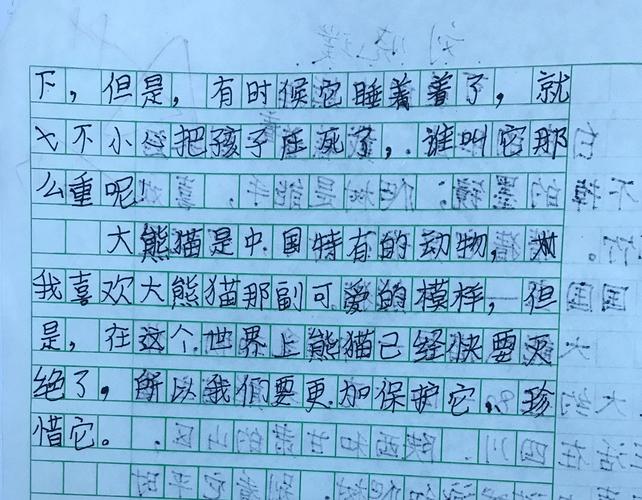 下，但是，有时候它睡着着了，就
不小心把孩子压死了，谁叫它那
么重呢！
大熊猫是中国特有的动物，
我喜欢大熊猫那副可爱的模样，但
是，在这个世界上熊猫已经快要灭
绝了，所以我们要更加保护它，珍
惜它。